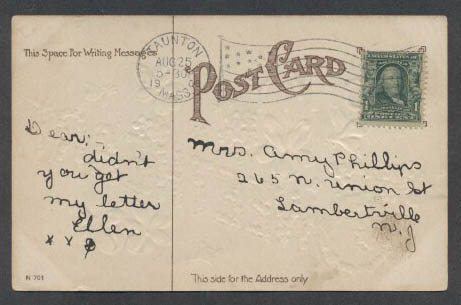 This Space For Writing Messages
TAUNTON
AUG 25
5-30
19
MASS.
POST CARD
Dear,
didn't
you get
my letter
Ellen
x x
Mrs. Amy Phillips
265 N. Union St
Lambertville
N.J
N 701
This side for the Address only